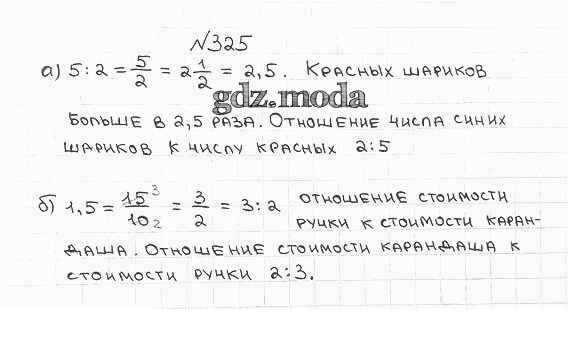 №325
а) 5:2 = 5/2 = 2 1/2 = 2,5. Красных шариков
gdz.moda
больше в 2,5 раза. Отношение числа синих
шариков к числу красных 2:5
б) 1,5 = 15 3/10 2 = 3/2 = 3:2 отношение стоимости
ручки к стоимости каран-
даша. Отношение стоимости карандаша к
стоимости ручки 2:3.